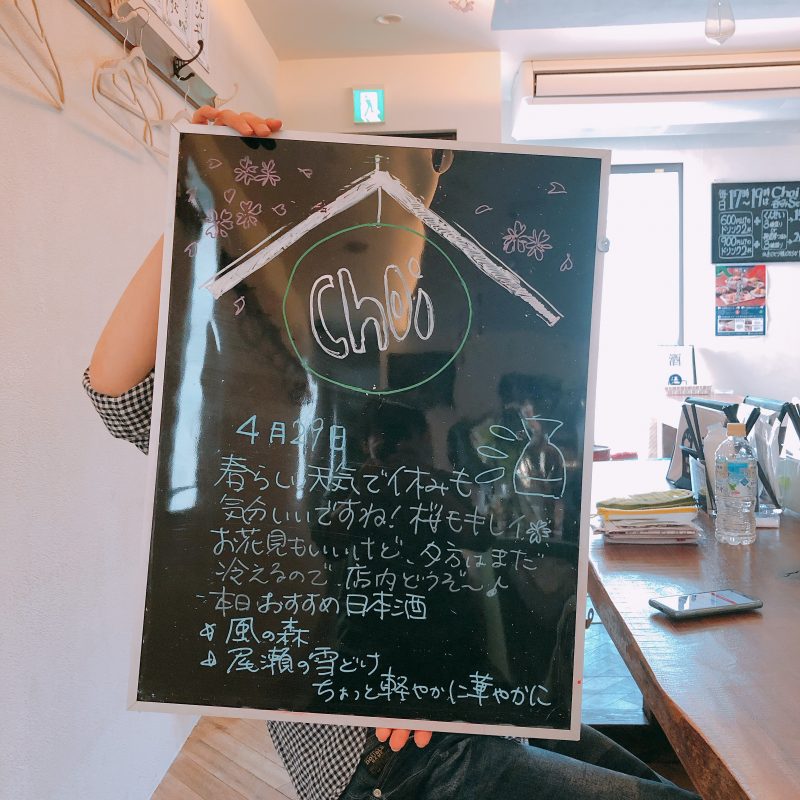 Choi
4月29日
春らしい天気で休みも
気分いいですね！桜もキレイ
お花見もいいけど、夕方はまだ
冷えるので、店内どうぞ〜♪
本日おすすめ日本酒
風の森
尾瀬の雪どけ
ちょっと軽やかに華やかに
17時
19時
Choi
600円
ドリンク2杯
900円
ドリンク2杯
酒